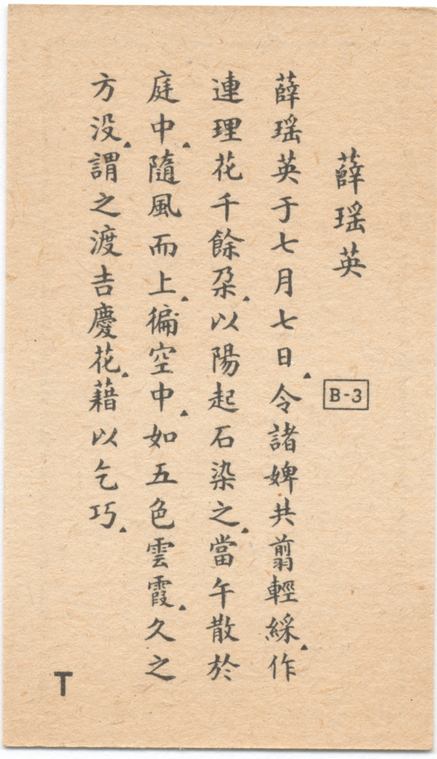 薛瑶英
B-3
薛瑶英于七月七日▲令諸婢共翦輕綵▲作
連理花千餘朶▲以陽起石染之▲當午散於
庭中▲隨風而上▲徧空中▲如五色雲霞▲久之
方没▲謂之渡吉慶花▲藉以乞巧▲
T